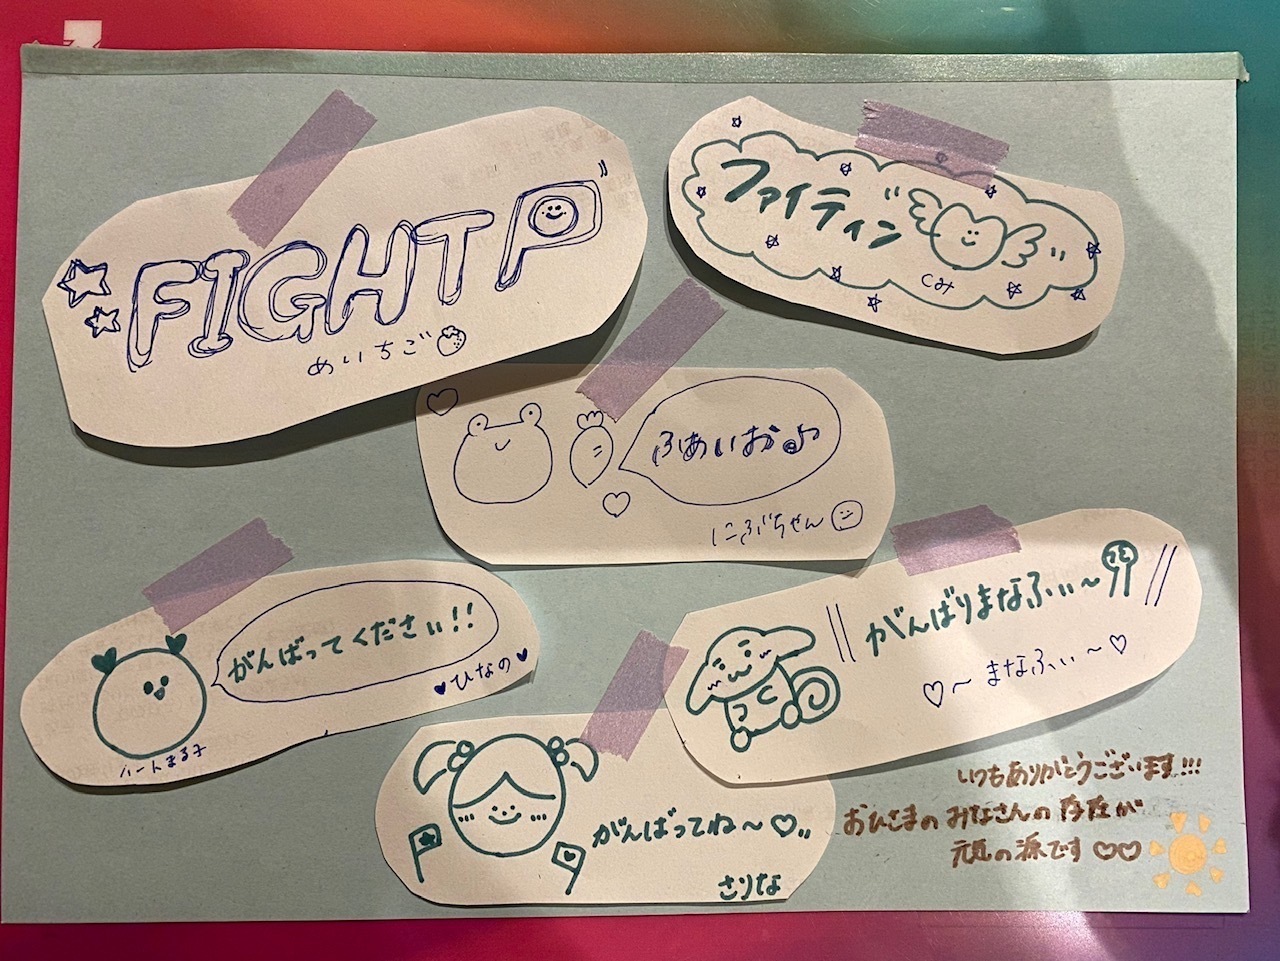 FIGHT P
めいちご
ファイティン
くみ
ふぁいお♪
にぶちゃん
がんばってください!!
ひなの
ハートまる子
がんばりまなふぃ〜
♡〜まなふぃ〜♡
がんばってね〜♡
さりな
いつもありがとうございます!!!
おひさまのみなさんの存在が
元気の源です♡♡